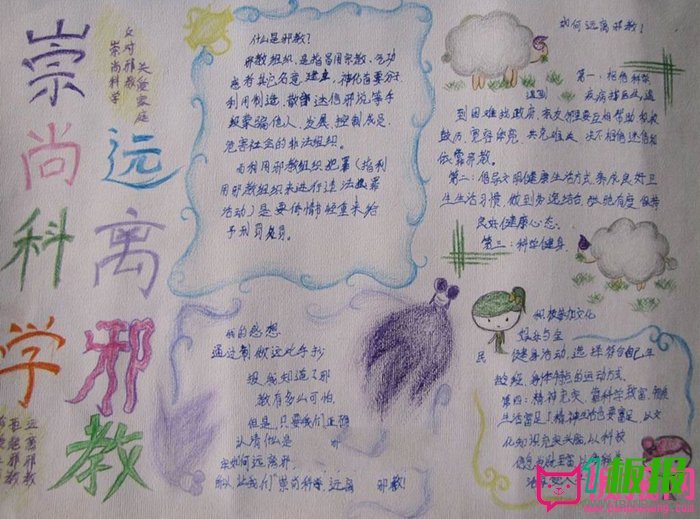 崇尚科学
远离邪教
反对邪教
关爱家庭
崇尚科学
什么是邪教?
邪教组织,是指冒用宗教、气功
或者其它名意建立,神化首要分子
利用制造、散布迷信邪说等手
段蒙骗他人,发展、控制成员,
危害社会的非法组织。
而利用邪教组织犯罪(指利
用邪教组织来进行违法犯罪
活动)是要依情节轻重来给
予刑罚处罚。
我的感想
通过制做这此手抄
报,我知道了邪
教有多么可怕,
但是,只要我们正确
认清他是
如何远离邪
让我们"崇尚科学,远离 邪教!
如何远离邪教?
第一:相信科学
遇到 疾病找医生,遇
到困难找政府,亲友邻里要互相帮助,积极
鼓励,宽容体谅,共克难关,决不相信迷信和
依靠邪教。
第二:倡导文明健康生活方式,养成良好卫
生生活习惯,做到劳逸结合,张弛有度,保持
良好健康心态。
第三:科学健身,
积极参加文化
娱乐与全
民 健身活动,选择符合自己年
龄、身体特点的运动方式。
第四:精神充实,靠科学致富,物质
生活富足了精神生活也要富足,以文
化知识充实头脑,以科技
信息
远离邪教
板报